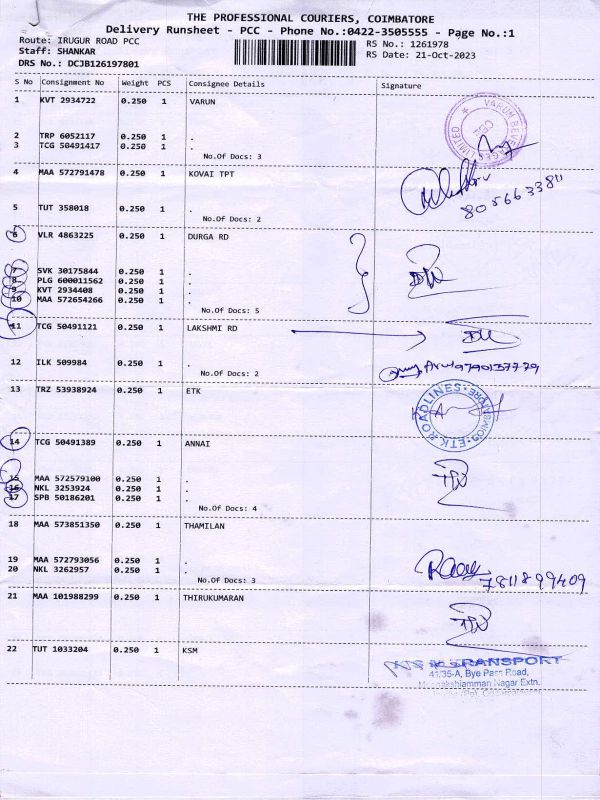 THE PROFESSIONAL COURIERS, COIMBATORE
Delivery Runsheet - PCC - Phone No.:0422-3505555 - Page No.:1
Route: IRUGUR ROAD PCC
RS No.: 1261978
Staff: SHANKAR
RS Date: 21-Oct-2023
DRS No.: DCJB126197801
S No Consignment No Weight PCS Consignee Details Signature
1 KVT 2934722 0.250 1 VARUN
VARUN BEVERAGES LIMITED
2 TRP 6052117 0.250 1 .
3 TCG 50491417 0.250 1 .
No.Of Docs: 3
4 MAA 572791478 0.250 1 KOVAI TPT
5 TUT 358018 0.250 1 .
No.Of Docs: 2
6 VLR 4863225 0.250 1 DURGA RD
7 SVK 30175844 0.250 1 .
8 PLG 600011562 0.250 1 .
9 KVT 2934408 0.250 1 .
10 MAA 572654266 0.250 1 .
No.Of Docs: 5
11 TCG 50491121 0.250 1 LAKSHMI RD
12 ILK 509984 0.250 1 .
No.Of Docs: 2
13 TRZ 53938924 0.250 1 ETK
ETK ROADLINES
14 TCG 50491389 0.250 1 ANNAI
15 MAA 572579100 0.250 1 .
16 NKL 3253924 0.250 1 .
17 SPB 50186201 0.250 1 .
No.Of Docs: 4
18 MAA 573851350 0.250 1 THAMILAN
19 MAA 572793056 0.250 1 .
20 NKL 3262957 0.250 1 .
No.Of Docs: 3
7811899409
21 MAA 101988299 0.250 1 THIRUKUMARAN
22 TUT 1033204 0.250 1 KSM
TRANSPORT
41/35-A, Bye Pass Road,
Nagar Extn.